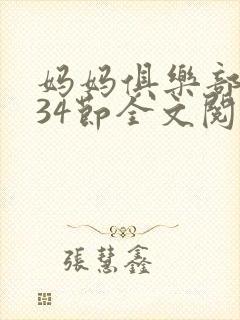 妈妈俱樂部
34節全文閱
張慧鑫